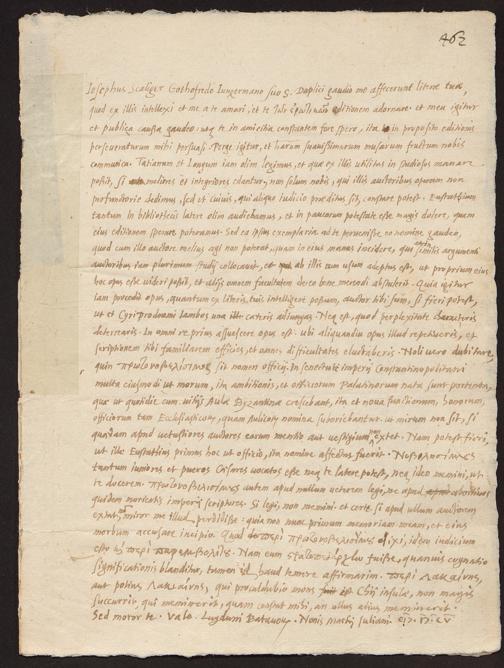 462
Josephus Scaliger Gothofredo Jungermano suo S. Duplici gaudio me affecerunt literæ tuæ,
quod ex illis intellexi et me a te amari, et te editionem adornare. et meu igitur
et publica causa gaudeo. neq te in amicitia constantem fore spero, ita in proposito editionis
perseveraturum mihi persuasi. Perge igitur, et harum suavissimarum musarum fructum nobis
communica. Tatianum et Longum iam olim legimus, et qua ex illis utilitas in studiosos manare
possit, si meliores et integriores edantur, non solum nobis, qui illis auctoribus operam non
perfunctorie dedimus, sed et cuivis, qui aliquo iudicio præditus sit, constare potest. Eustathium
tantum in bibliothecis latere olim audiebamus, et in paucorum potestate esse magis dolere, quam
eius editionem sperare poteramus. Sed ea ipsius exemplaria ad te pervenisse eo nomine gaudeo,
quod cum illo auctore melius agi non poterat, quam in eius manus incidere, qui similis argumenti
auctoribus iam plurimum studij collocavit, et ab illis eum usum adeptus est, ut proprium eius
hoc opus esse videri possit, et alijs omnem facultatem de eo bene merendi abstulerit. Quia igitur
iam procedit opus, quantum ex literis tuis intelligere possum, auctor tibi sum, si fieri potest,
ut et Cyri Prodromi Iambos una illi cæteris adiungas. Neq est, quod perplexitate characteris
deterrearis. In omni re prius assuescere opus est. ubi aliquandiu opus illud
scriptionem tibi familiarem efficies, et omnes difficultates Noli vero dubitare,
quin πρωτονοβελισσιμος sit nomen officij. In senectute imperij Constantinopolitani
multa eiusmodi ut morum, ita ambitionis, et officiorum Palatinorum nata sunt portenta,
quæ ut quotidie cum vitijs Aulæ Byzantinæ crescebant, ita et nova functionum, honorum,
officiorum tam Ecclesiasticorum, quam Aulicorum nomina suboriebantur. ut mirum non sit, si
quarundam apud vetustiores auctores earum mentio aut vestigium non extet. Nam potest fieri,
ut ille Eustathius primus hoc ut officio, ita nomine affectus fuerit. Νωβελισσίμους
tantum iuniores et pueros Cæsares vocatos esse neq te latere potest, neq ideo memini, ut
te docerem. πρωτονοβελισσίμους autem apud nullum veterem legi, ne apud
quidem morientis imperij scriptores. Si legi, non memini. et certe si apud ullum auctorem
extat, non miror me illud perdidisse. quia non nunc primum memoriam meam, et eius
morbum accusare incipio. Quod de περὶ πρωτονοβελισσίμου dixi, idem iudicium
esto περὶ παρεμβολῆς. Nam eum fuisse, quamvis cognatio
significationis blanditur, tamen haud temere affirmarim. περὶ Λακαίνης,
aut potius Λακαίνης, qui proculdubio mons est Chij insulæ, non magis
succurrit, qui meminerit, quam constat mihi, an ullus alius meminerit.
Sed moror te. Vale. Lugduni Batavor. Nonis Martij Juliani. CIↃ.IↃ.CV